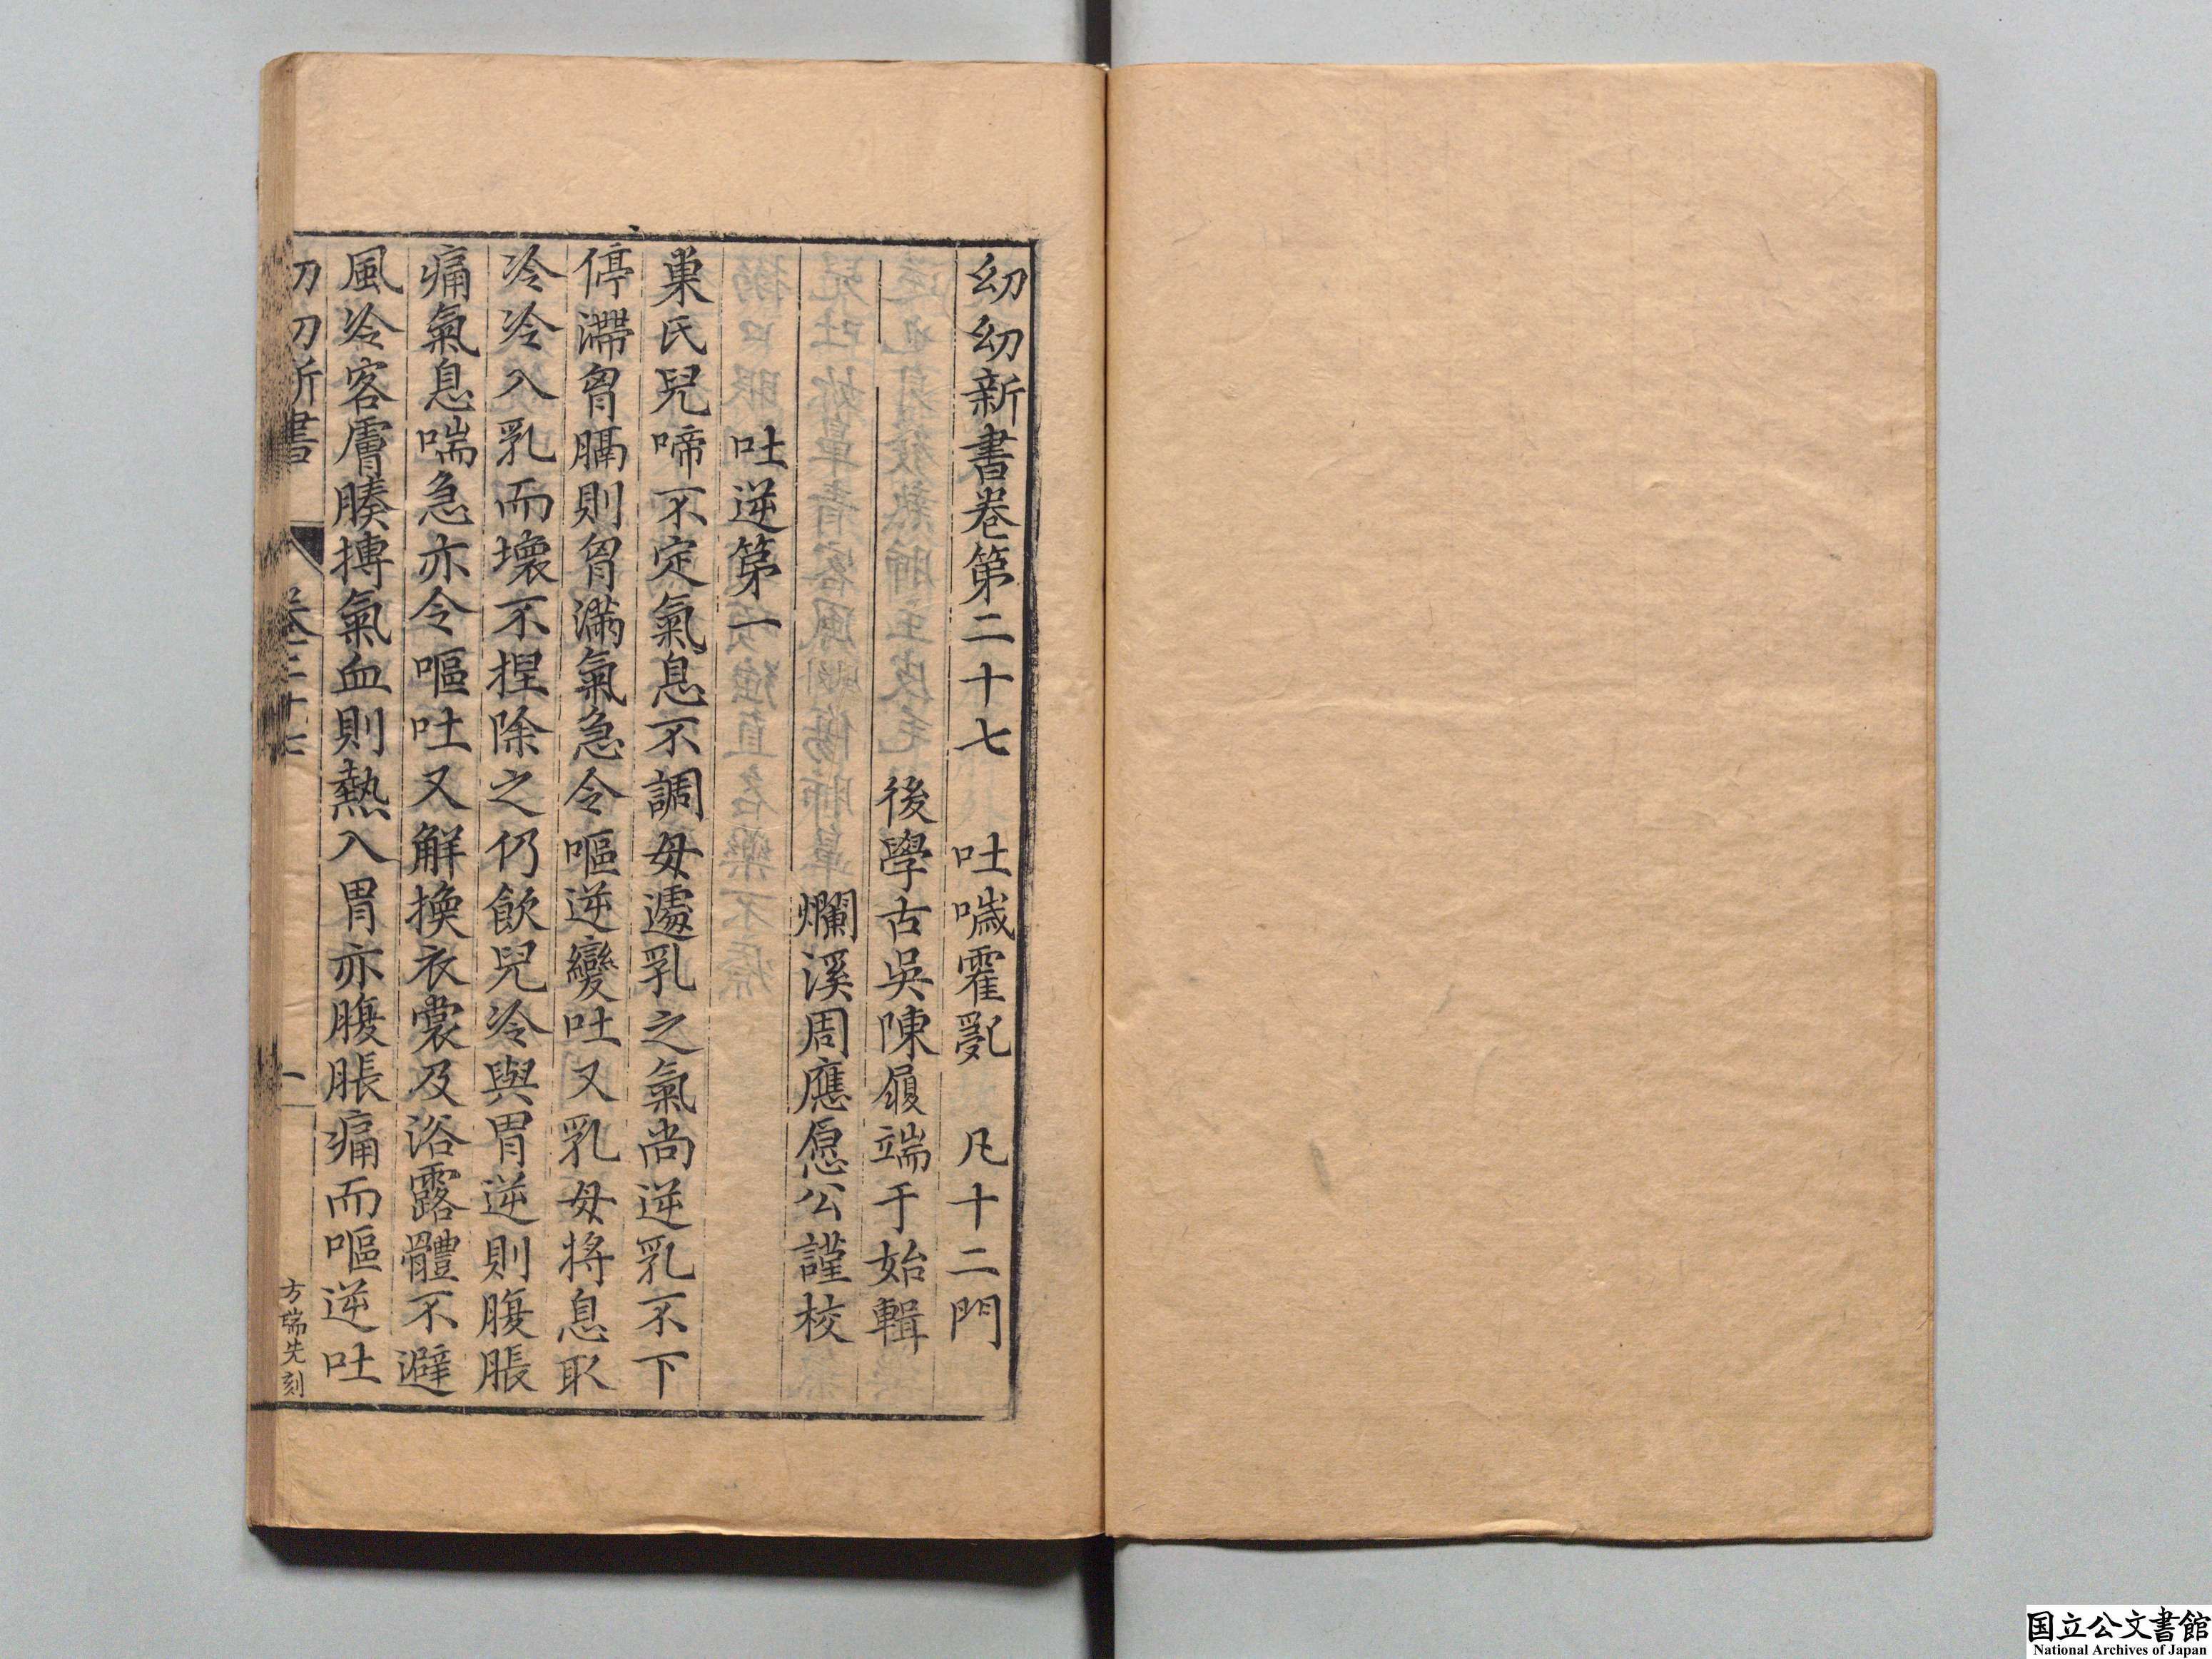 幼幼新書卷第二十七　吐噦霍亂　凡十二門
後學古吳陳履端于始輯
爛溪周應愿公謹校
吐逆第一
巢氏兒啼不定氣息不調母遽乳之氣尚逆乳不下
停滯胷膈則胷滿氣急令嘔逆變吐又乳母將息取
冷冷入乳而壞不捏除之仍飲兒冷與胃逆則腹脹
痛氣息喘急亦令嘔吐又解換衣裳及浴露體不避
風冷客膚腠搏氣血則熱入胃亦腹脹痛而嘔逆吐
幼幼新書　卷二十七　一　方瑞先刻
国立公文書館
National Archives of Japan